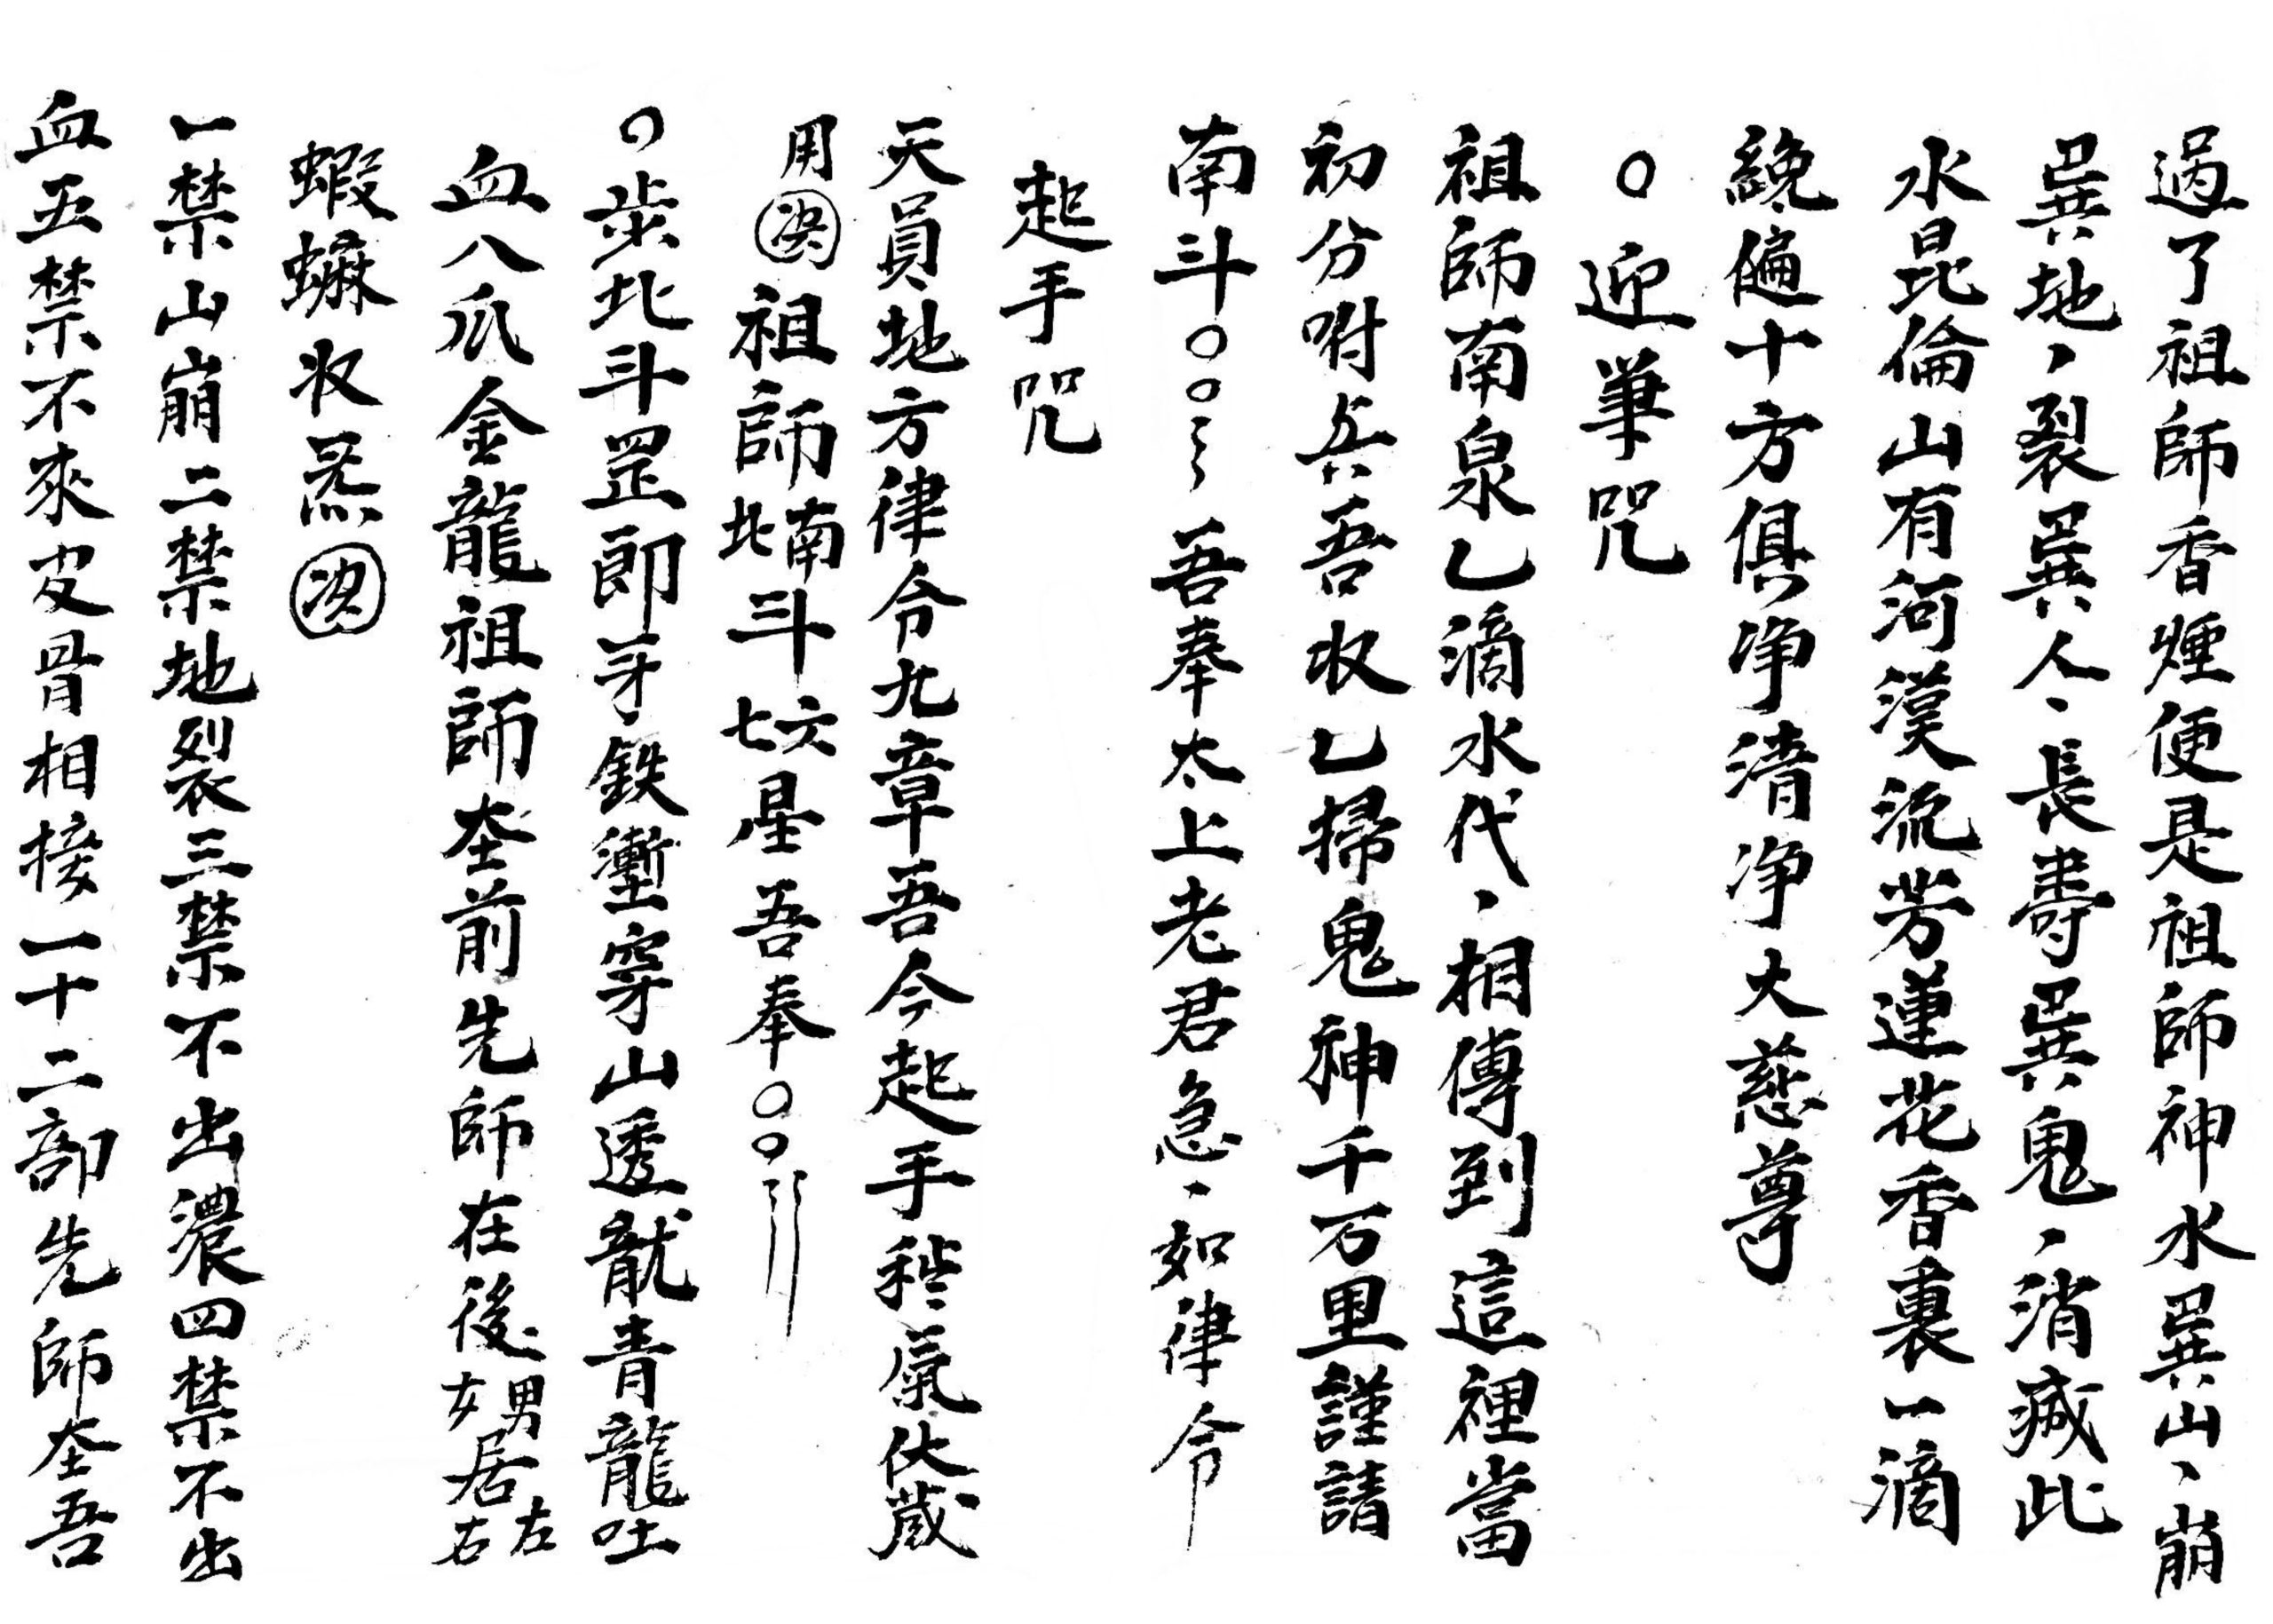 過了祖師香煙便是祖師神水巽山、崩
巽地、裂巽人、長壽巽鬼、消滅此
水昆倫山有河漢流芳蓮花香裏一滴
纔偏十方俱净清净大慈尊
○迎筆咒
祖師南泉乙滴水代、相傳到這裡當
初分咐兵吾收乙掃鬼神千万里謹請
南斗○○〻吾奉太上老君急、如律令
起手咒
天員地方律令九章吾今起手氣伏藏
用決祖師南北斗六七星吾奉○○
○步北斗罡即茅鉄塹穿山透龍青龍吐
血八爪金龍祖師在前先師在後男女居左右
蝦蟆收炁決
一禁山崩二禁地裂三禁不出濃四禁不出
血五禁不來皮骨相接一十二部先師在吾